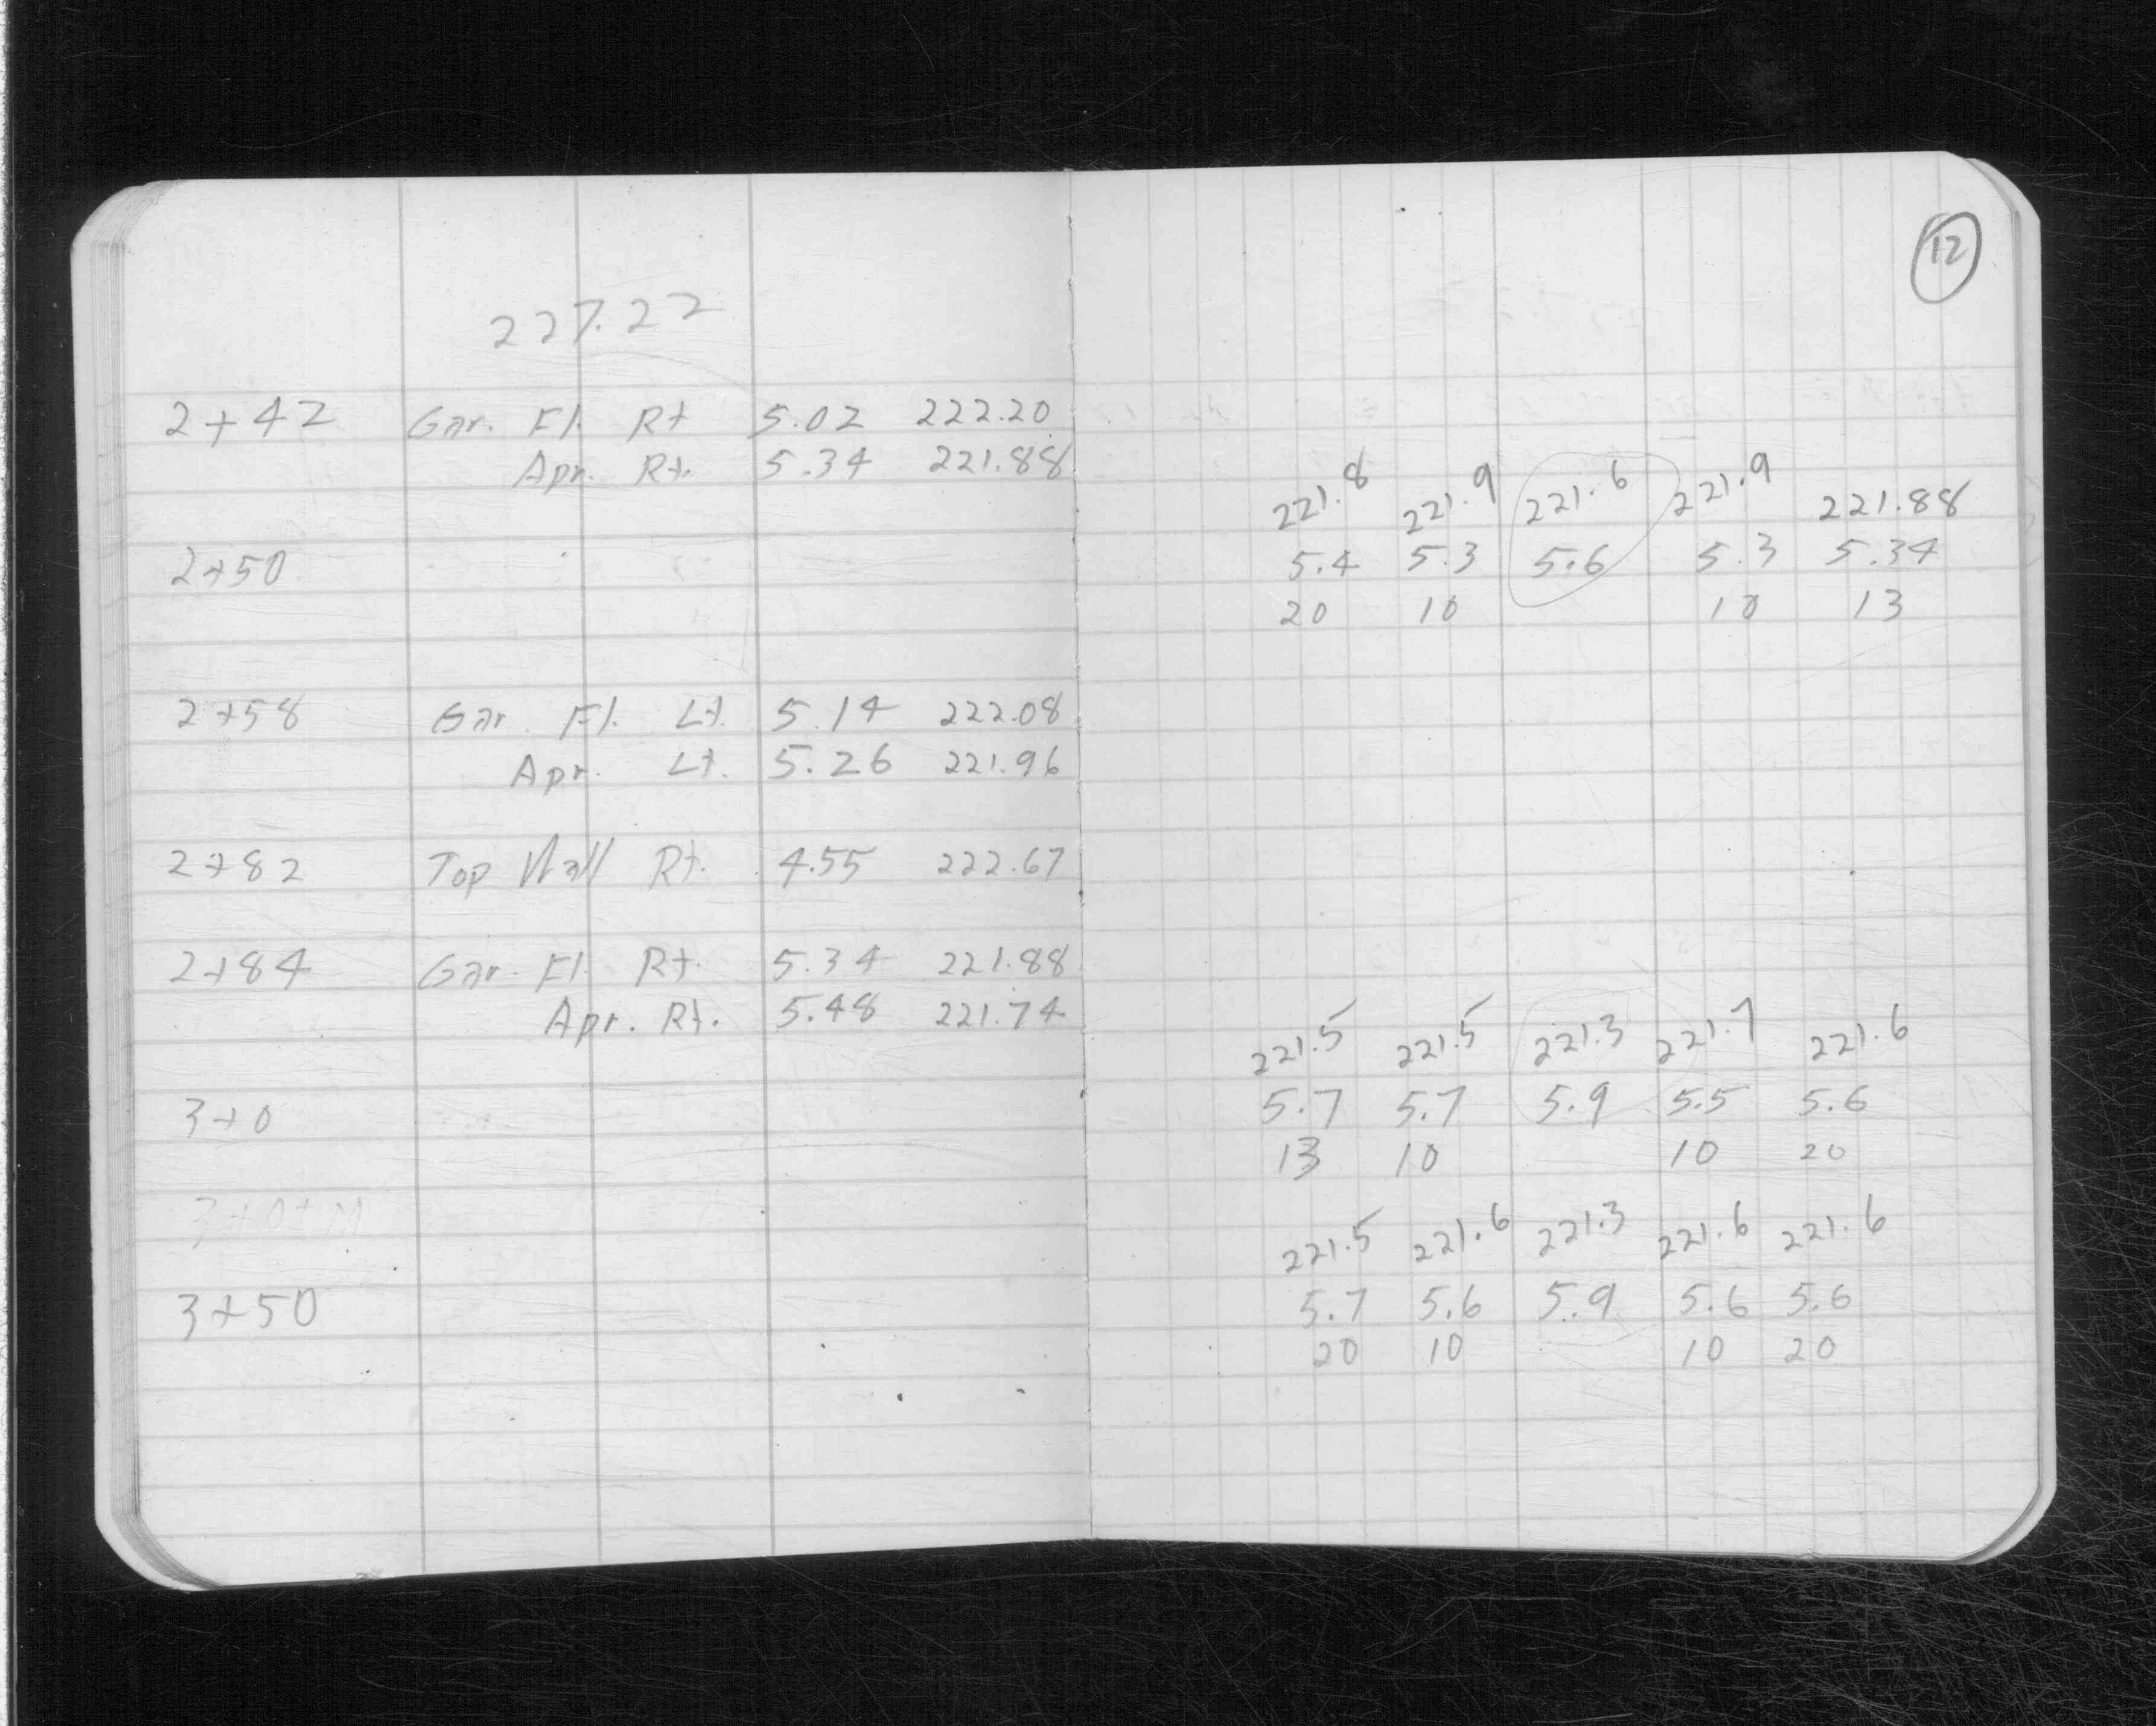 12
227.22
2+42 Gar. Fl. Rt 5.02 222.20
Apr. Rt. 5.34 221.88
2+50
2+58 Gar. Fl. Lt. 5.14 222.08
Apr. Lt. 5.26 221.96
2+82 Top Wall Rt. 4.55 222.67
2+84 Gar. Fl. Rt. 5.34 221.88
Apr. Rt. 5.48 221.74
3+0
3+50
221.8 221.9 221.6 221.9 221.88
5.4 5.3 5.6 5.3 5.34
20 10 10 13
221.5 221.5 221.3 221.7 221.6
5.7 5.7 5.9 5.5 5.6
13 10 10 20
221.5 221.6 221.3 221.6 221.6
5.7 5.6 5.9 5.6 5.6
20 10 10 20